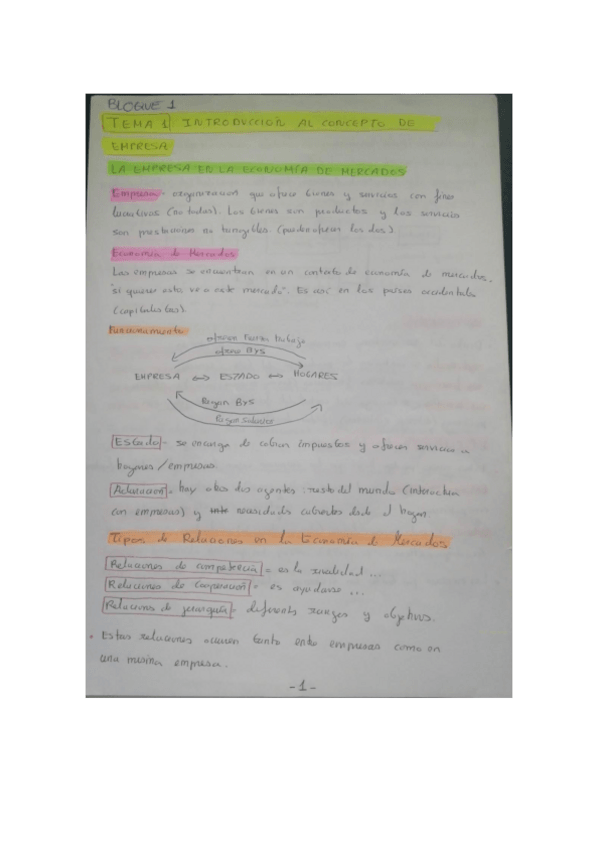 BLOQUE 1
TEMA 1 INTRODUCCIÓN AL CONCEPTO DE
EMPRESA
LA EMPRESA EN LA ECONOMÍA DE MERCADOS
Empresa = organización que ofrece bienes y servicios con fines
lucrativos (no todas). Los bienes son productos y los servicios
son prestaciones no tangibles. (pueden ofrecer los dos)
Economía de Mercados
Las empresas se encuentran en un contexto de economía de mercados,
"si quieres esto ve a este mercado". Es así en los países occidentales
(capitalistas).
Funcionamiento
ofrecen fuerza trabajo
ofrece BYS
EMPRESA ↔ ESTADO ↔ HOGARES
Pagan BYS
Pagan salarios
Estado = se encarga de cobrar impuestos y ofrecer servicios a
hogares/empresas.
Aclaración = hay otros dos agentes: resto del mundo (interactua
con empresas) y necesidades cubiertas desde el hogar.
Tipos de Relaciones en la Economía de Mercados
Relaciones de competencia = es la rivalidad ...
Relaciones de Cooperación = es ayudarse ...
Relaciones de jerarquía = diferentes rangos y objetivos.
• Estas relaciones ocurren tanto entre empresas como en
una misma empresa.
- 1 -